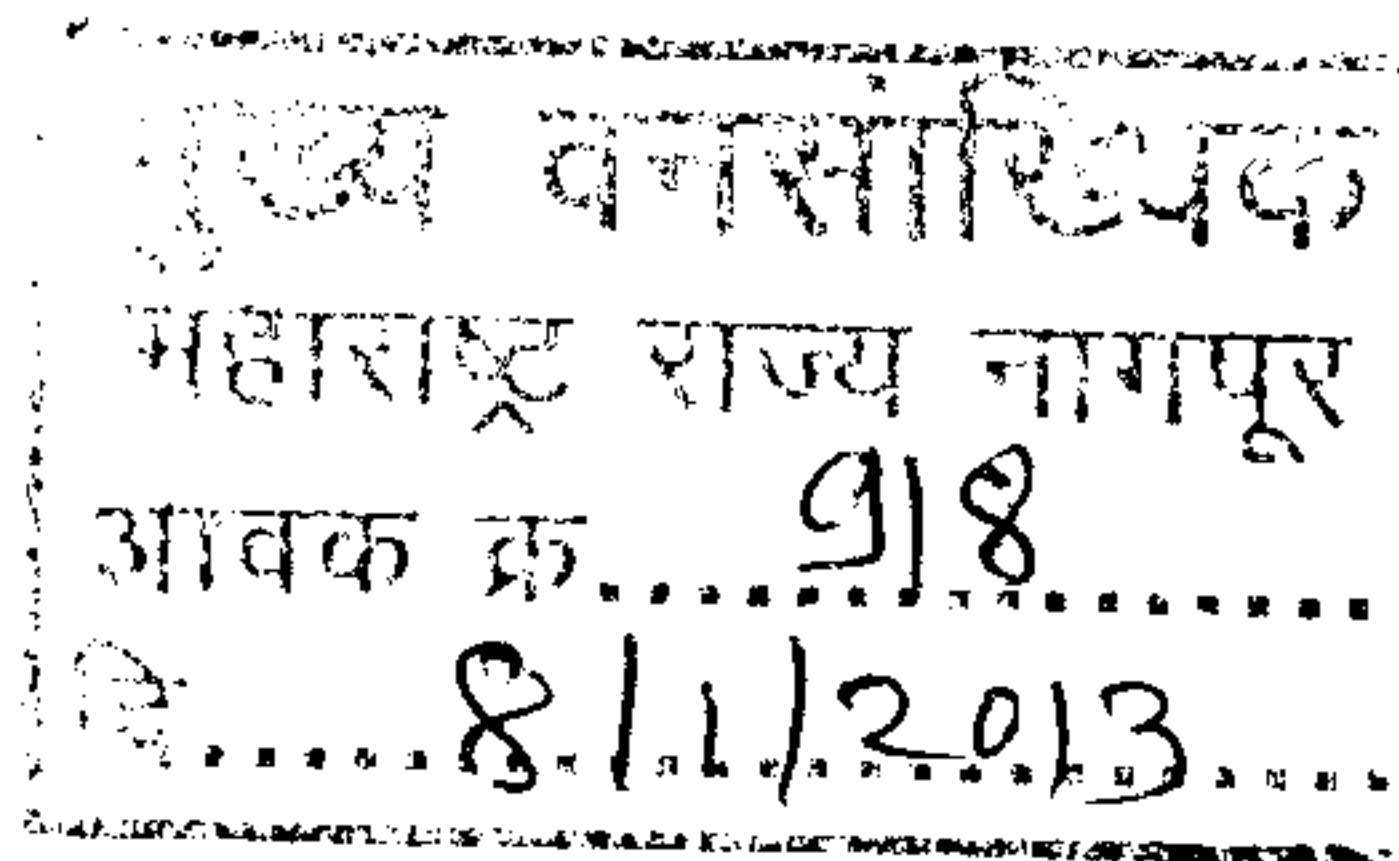 मुख्य वनसांख्यिक
महाराष्ट्र राज्य नागपूर
आवक क्र. 918
दि. 8/1/2013